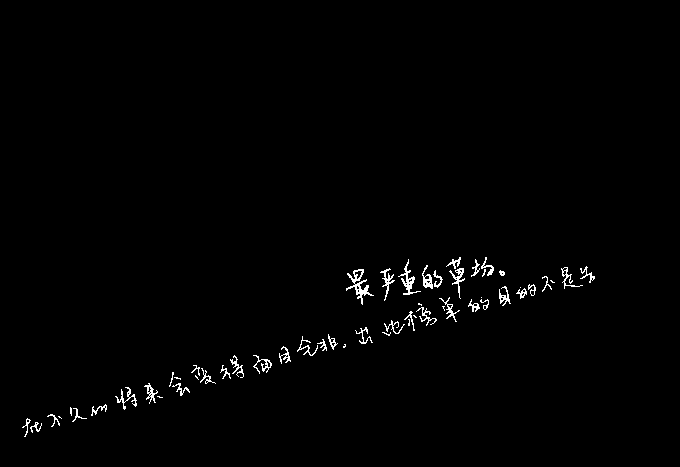 最严重的草场。
在不久的将来会变得面目全非。出此榜单的目的不是为